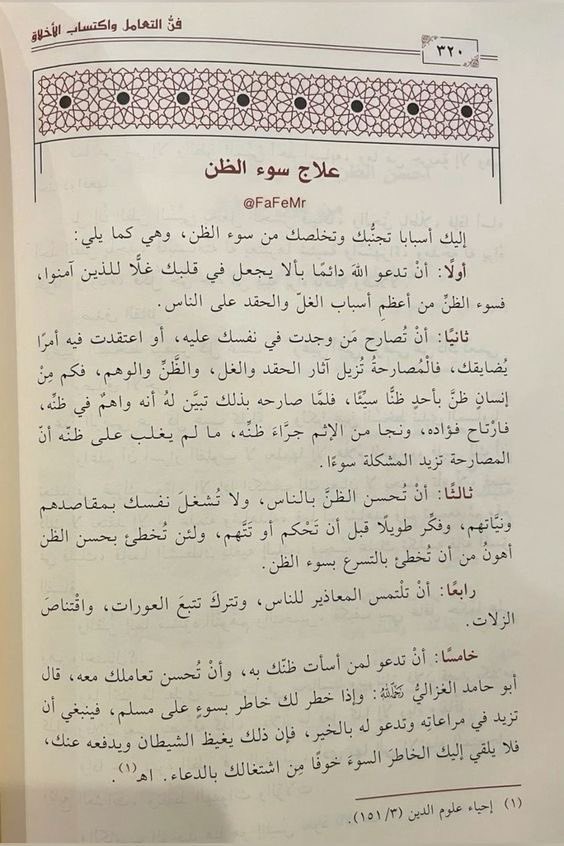 فنُّ التعامل واكتساب الأخلاق
٣٢٠
علاج سوء الظن
@FaFeMr
إليك أسبابا تجنُّبك وتخلصك من سوء الظن، وهي كما يلي:
أولًا: أنْ تدعو اللهَ دائمًا بألا يجعل في قلبك غلًّا للذين آمنوا،
فسوء الظنِّ من أعظمِ أسباب الغلّ والحقد على الناس.
ثانيًا: أنْ تُصارح مَن وجدت في نفسك عليه، أو اعتقدت فيه أمرًا
يُضايقك، فالْمُصارحةُ تُزيل آثار الحقد والغل، والظَّنِّ والوهم، فكم مِنْ
إنسانٍ ظنَّ بأحدٍ ظنًّا سيِّئًا، فلمَّا صارحه بذلك تبيَّن لهُ أنه واهمٌ في ظنِّه،
فارْتاح فؤاده، ونجا من الإثم جرَّاءَ ظنِّه، ما لم يغلب على ظنّه أنّ
المصارحة تزيد المشكلة سوءًا.
ثالثًا: أنْ تُحسن الظنَّ بالناس، ولا تُشغلَ نفسك بمقاصدهم
ونيَّاتهم، وفكِّر طويلًا قبل أن تَحْكم أو تَتَّهم، ولئن تُخطئ بحسن الظن
أهونُ من أن تُخطئ بالتسرع بسوء الظن.
رابعًا: أنْ تلْتمس المعاذير للناس، وتتركَ تتبعَ العورات، واقْتناصَ
الزلات.
خامسًا: أنْ تدعو لمن أسأت ظنّك به، وأنْ تُحسن تعاملك معه، قال
أبو حامد الغزاليُّ رحمه الله: وإذا خطر لك خاطر بسوءٍ على مسلم، فينبغي أن
تزيد في مراعاتِه وتدعو له بالخير، فإن ذلك يغيظ الشيطان ويدفعه عنك،
فلا يلقي إليك الخاطرَ السوءَ خوفًا مِن اشتغالك بالدعاء. اهـ(١).
(١) إحياء علوم الدين (٣/ ١٥١).